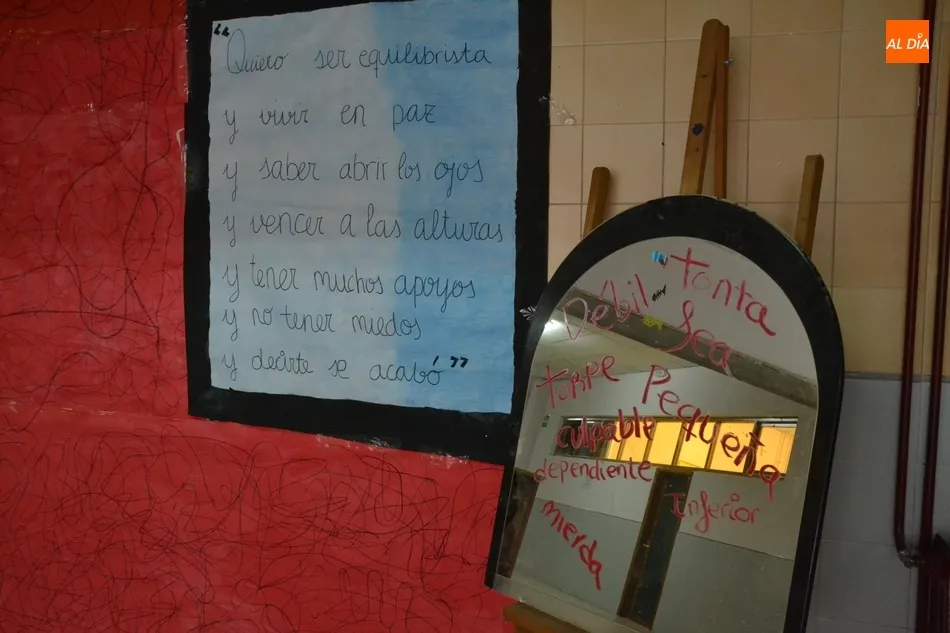 “Quiero ser equilibrista
y vivir en paz
y saber abrir los ojos
y vencer a las alturas
y tener muchos apoyos
y no tener miedos
y decirte se acabó”
AL DÍA
tonta
Débil
fea
torpe
Pequeña
culpable
dependiente
Inferior
mierda